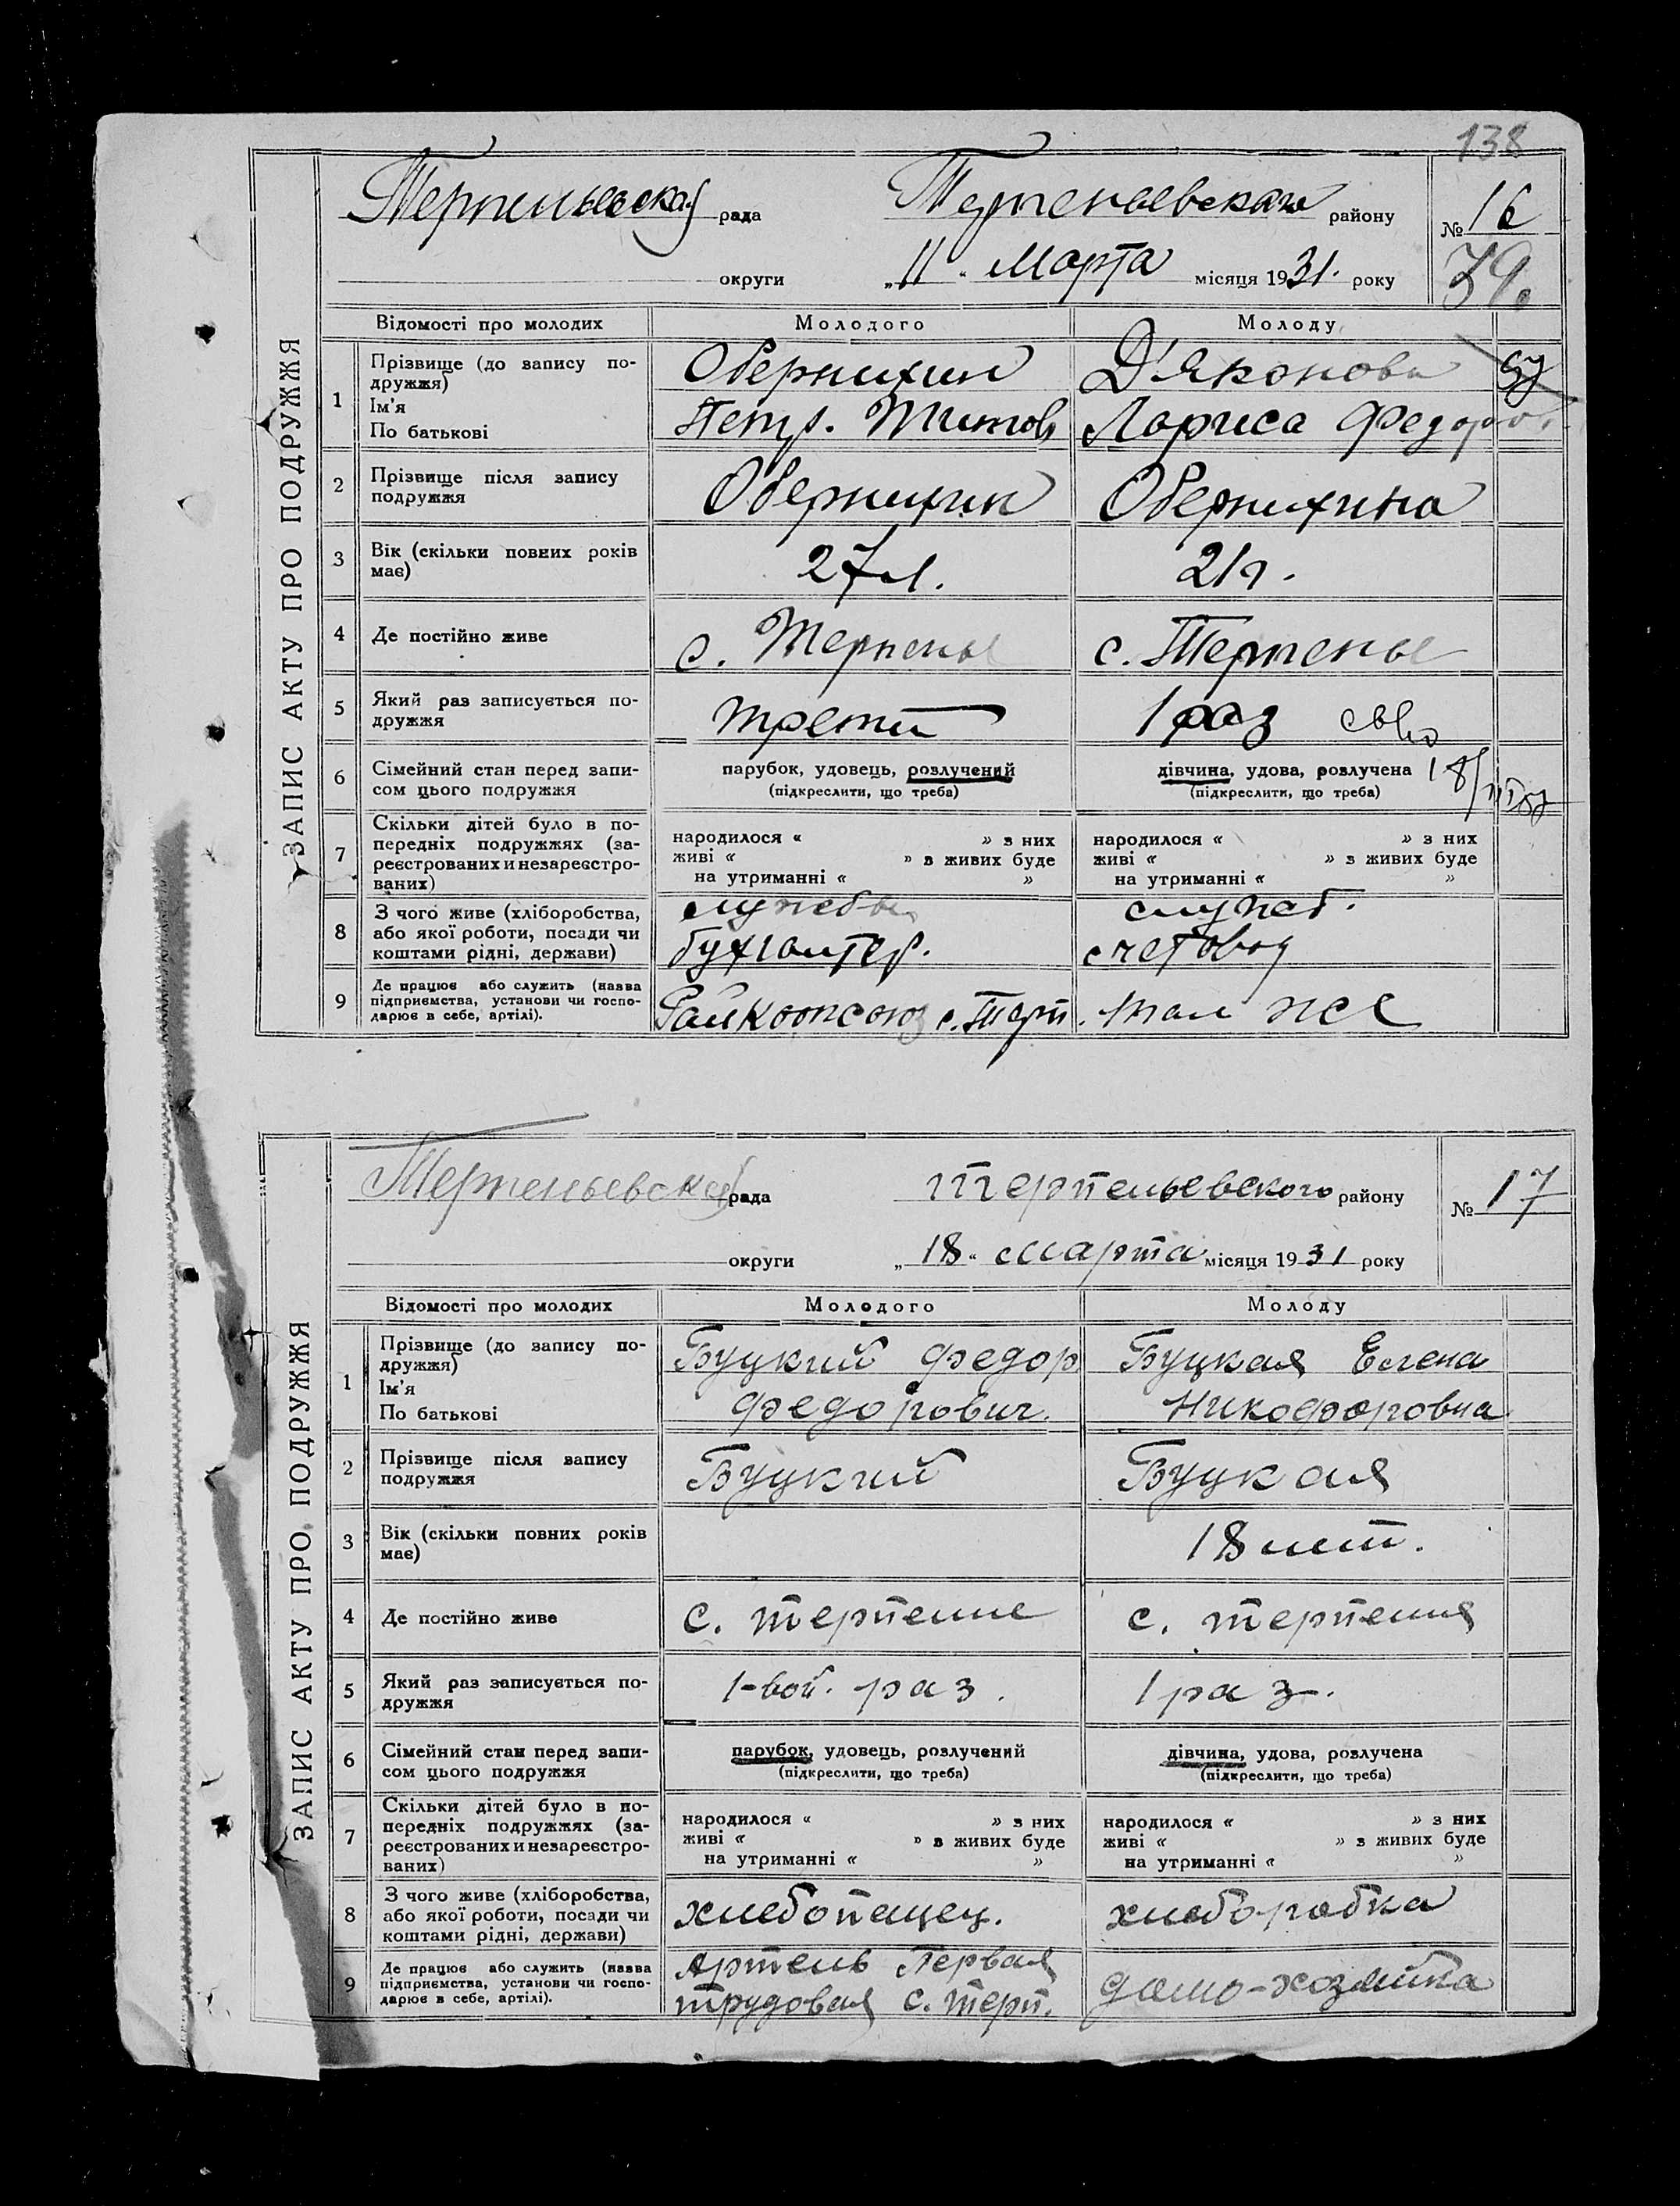 138
ЗАПИС АКТУ ПРО ПОДРУЖЖЯ
Терпеньевская рада Терпеньевского району № 16
округи „11“ Марта місяця 1931. року 39.
Відомості про молодих Молодого Молоду
1 Прізвище (до запису по-
дружжя)
Ім'я
По батькові
Обернихин Д'яконова
Петр. Титов Лариса Федоров.
2 Прізвище після запису
подружжя
Обернихин Обернихина
3 Вік (скільки повних років
має)
27 л. 21 г.
4 Де постійно живе
с. Терпенье с. Терпенье
5 Який раз записується по-
дружжя
третий 1 раз
6 Сімейний стан перед запи-
сом цього подружжя
парубок, удовець, розлучений
(підкреслити, що треба)
дівчина, удова, розлучена
(підкреслити, що треба)
18/III 57
7 Скільки дітей було в по-
передніх подружжях (за-
реєстрованих и незареєстро-
ваних)
народилося « » з них
живі « » з живих буде
на утриманні « »
народилося « » з них
живі « » з живих буде
на утриманні « »
8 З чого живе (хліборобства,
або якої роботи, посади чи
коштами рідні, держави)
службы служб.
бухгалтер. счетовод
9 Де працює або служить (назва
підприємства, установи чи госпо-
дарює в себе, артілі).
Райкоопсоюз с. Терп. там же
ЗАПИС АКТУ ПРО ПОДРУЖЖЯ
Терпеньевская рада Терпеньевского району № 17
округи „18“ Марта місяця 1931 року
Відомості про молодих Молодого Молоду
1 Прізвище (до запису по-
дружжя)
Ім'я
По батькові
Буцкий Федор Буцкая Елена
Федорович. Никофоровна
2 Прізвище після запису
подружжя
Буцкий Буцкая
3 Вік (скільки повних років
має)
18 лет.
4 Де постійно живе
с. Терпение с. Терпения
5 Який раз записується по-
дружжя
1-вой. раз. 1 раз.
6 Сімейний стан перед запи-
сом цього подружжя
парубок, удовець, розлучений
(підкреслити, що треба)
дівчина, удова, розлучена
(підкреслити, що треба)
7 Скільки дітей було в по-
передніх подружжях (за-
реєстрованих и незареєстро-
ваних)
народилося « » з них
живі « » з живих буде
на утриманні « »
народилося « » з них
живі « » з живих буде
на утриманні « »
8 З чого живе (хліборобства,
або якої роботи, посади чи
коштами рідні, держави)
хлебопащец. хлеборобка
9 Де працює або служить (назва
підприємства, установи чи госпо-
дарює в себе, артілі).
Артель Первая
трудовая с. Терп. домо-хозяйка